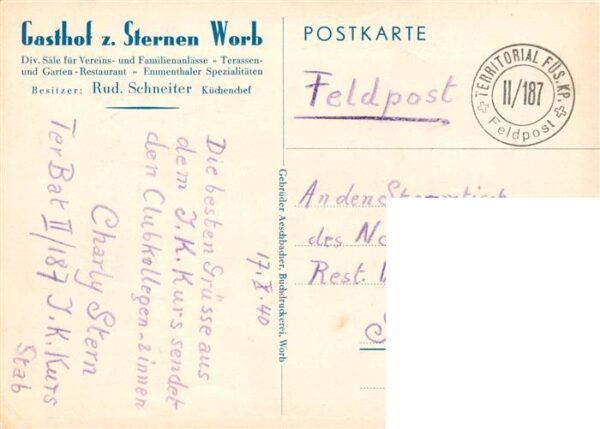 Gasthof z. Sternen Worb
Div. Säle für Vereins- und Familienanlässe - Terassen-
und Garten-Restaurant - Emmenthaler Spezialitäten
Besitzer: Rud. Schneiter Küchenchef
POSTKARTE
Feldpost
TERRITORIAL FÜS. KP.
II/187
Feldpost
17. X. 40
Die besten Grüsse aus
dem J. K. Kurs sendet
den Clubkollegen - & innen
Charly Stern
Ter Bat II/187 J. K. Kurs
Stab
Gebrüder Aeschbacher, Buchdruckerei, Worb
An den Stammtisch
des
Rest.